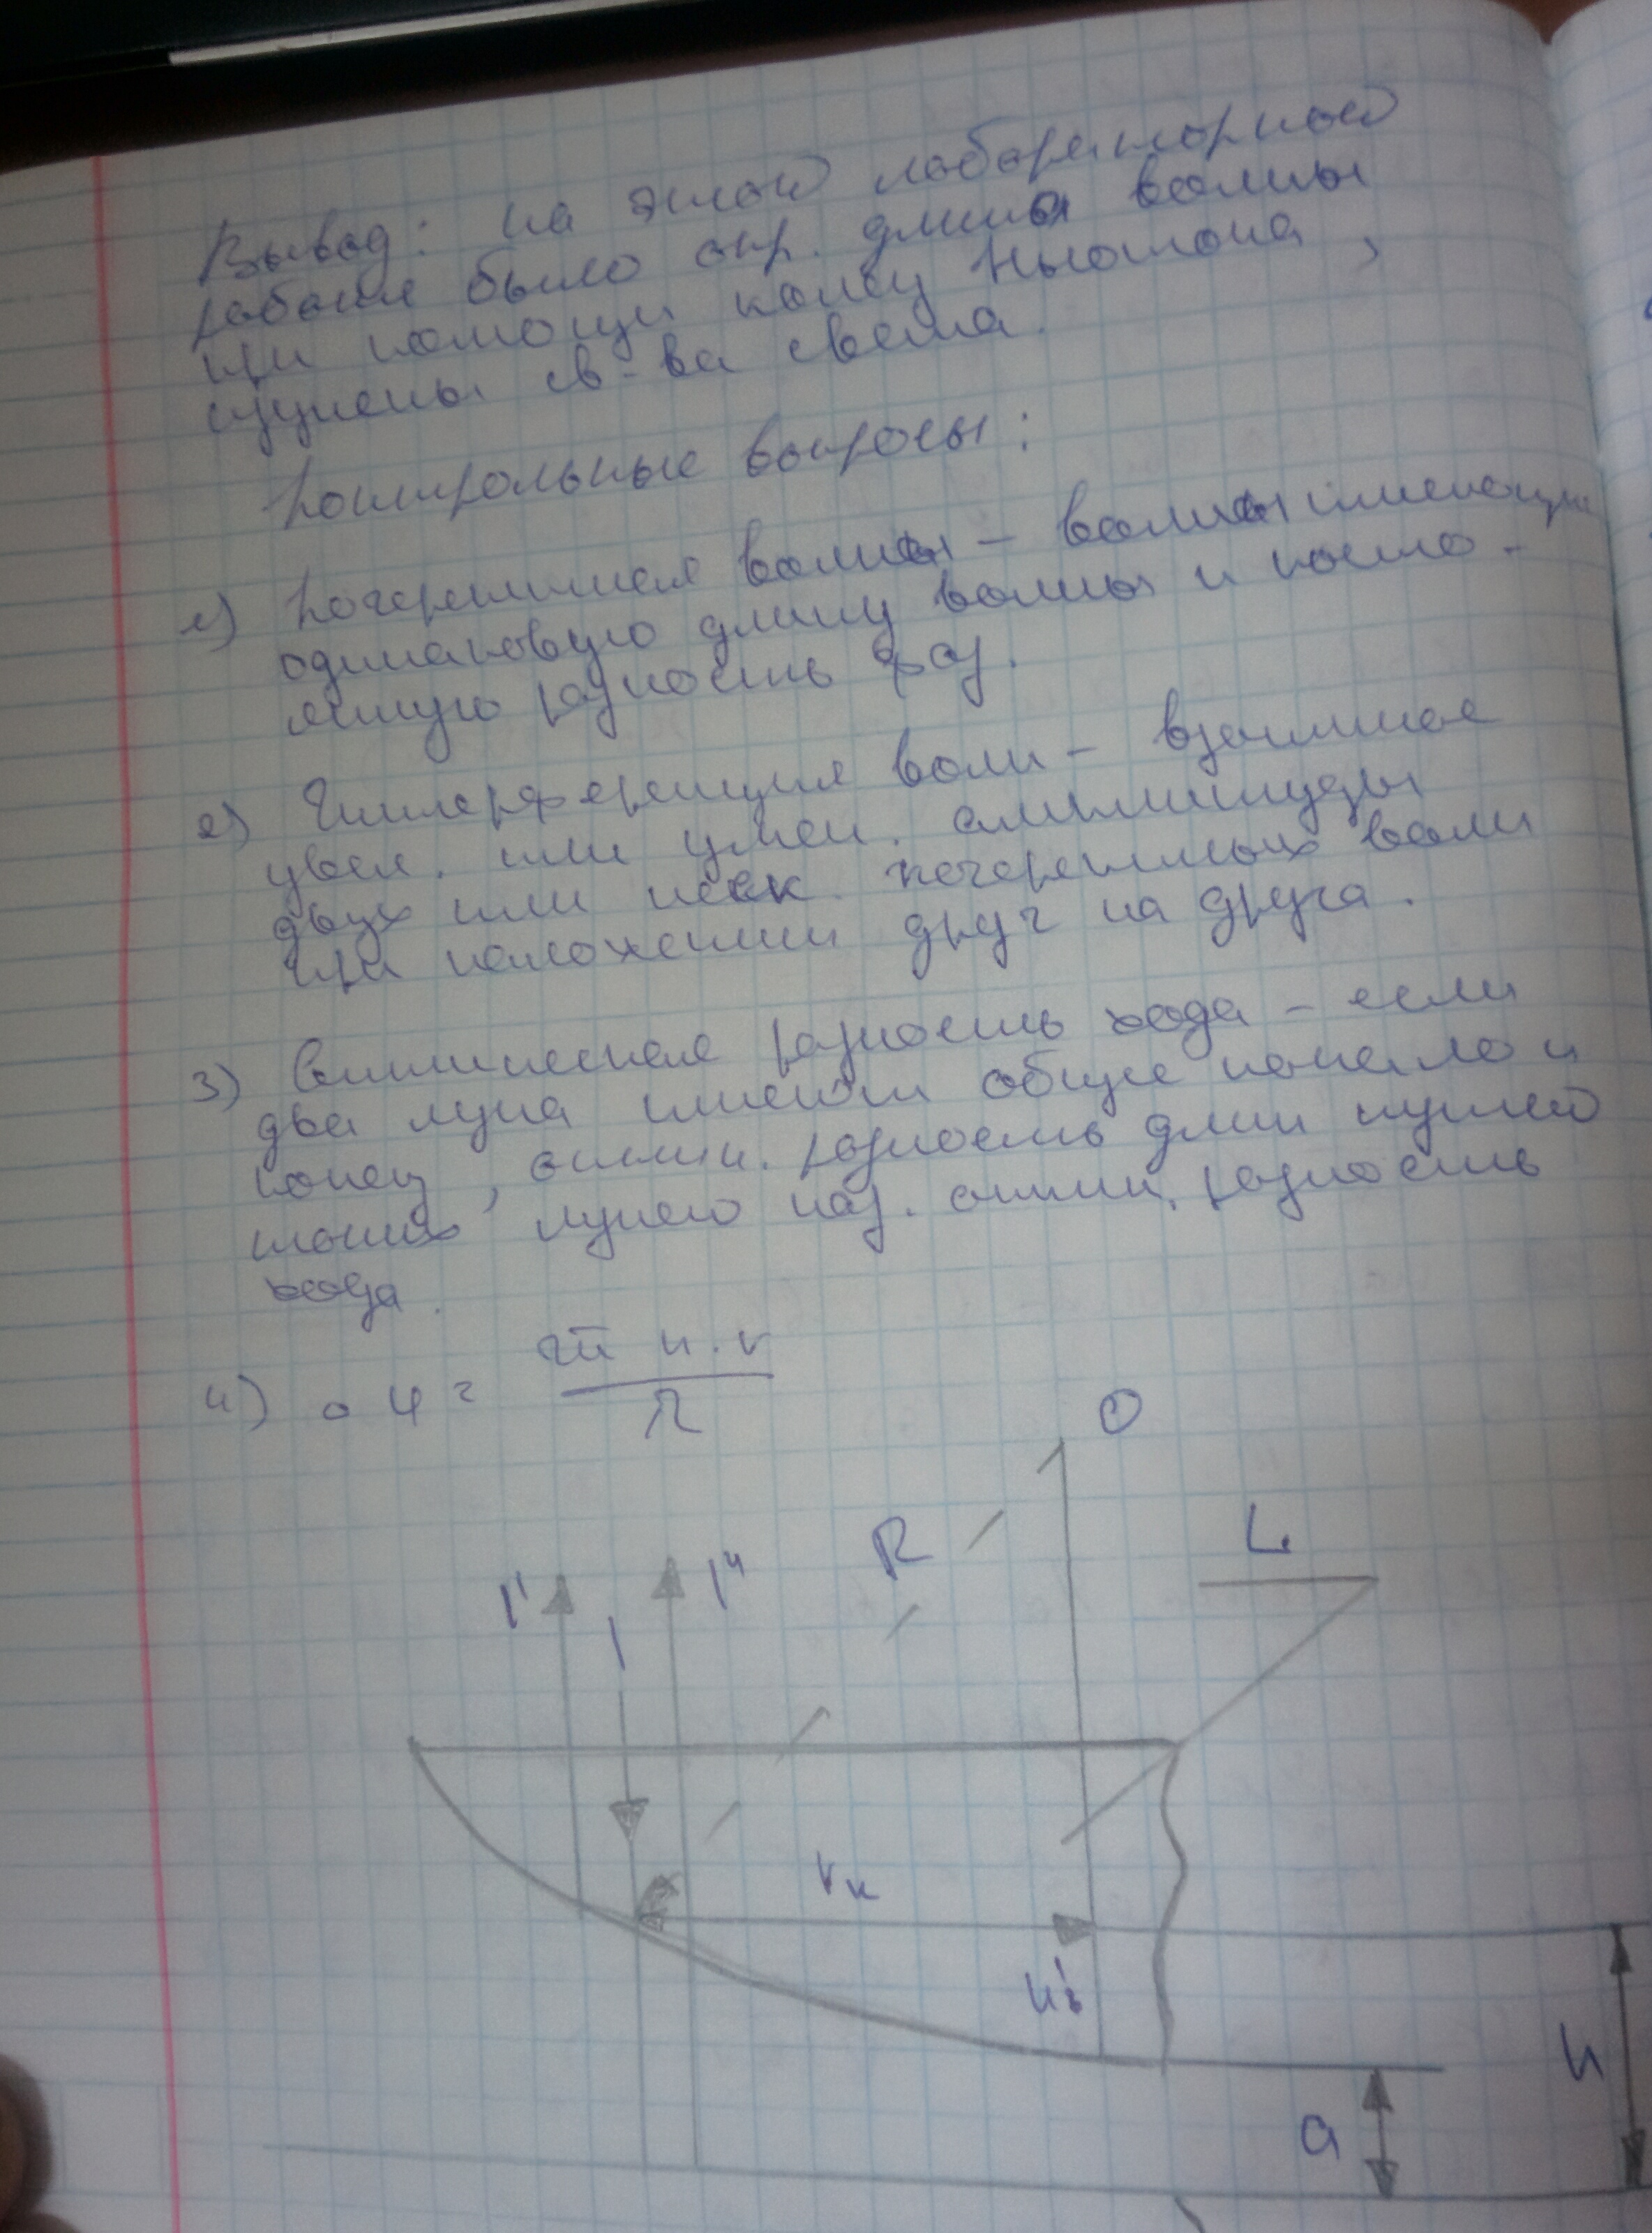 Вывод: на этой лабораторной
работе было опр. длина волны
при помощи колец Ньютона,
изучены св-ва света.
Контрольные вопросы:
1) Когерентная волны – волны имеющие
одинаковую длину волны и посто-
янную разность фаз.
2) Интерференция волн – взаимное
увел. или умен. амплитуды
двух или неск. когерентных волн
при наложении друг на друга.
3) Оптическая разность хода – если
два луча имеют общие начало и
конец, оптич. разность длин путей
таких лучей наз. оптич. разность
хода.
4) φ = 2π n · r / λ
O
R
L
1' 1 1"
rк
h'
h
a